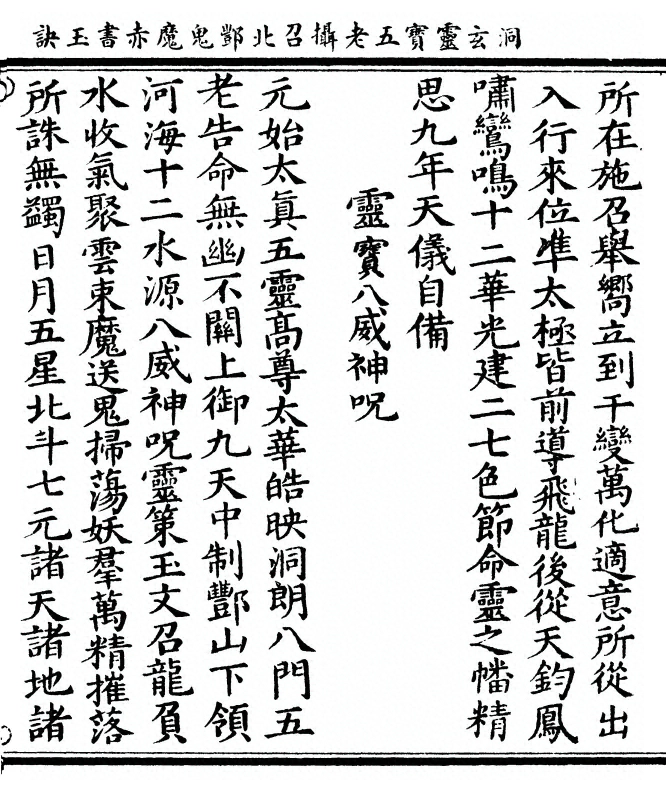 洞玄靈寶五老攝召北酆鬼魔赤書玉訣
所在施召舉嚮立到千變萬化適意所從出
入行來位準太極皆前導飛龍後從天鈞鳳
嘯鸞鳴十二華光建二七色節命靈之幡精
思九年天儀自備
靈寶八威神呪
元始太真五靈高尊太華皓映洞朗八門五
老告命無幽不關上御九天中制酆山下領
河海十二水源八威神呪靈策玉文召龍負
水收氣聚雲束魔送鬼掃蕩妖羣萬精摧落
所誅無蠲日月五星北斗七元諸天諸地諸